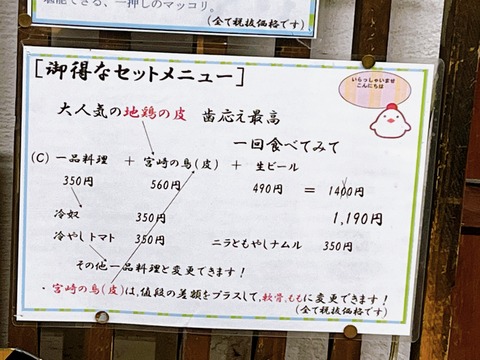 堪能できる、一押しのマッコリ。
(全て税抜価格です)
[御得なセットメニュー]
いらっしゃいませ
こんにちは
大人気の地鶏の皮 歯応え最高
一回食べてみて
(C) 一品料理 + 宮崎の鳥(皮) + 生ビール
350円 560円 490円 = 1400円
1,190円
冷奴 350円
冷やしトマト 350円 ニラともやしナムル 350円
その他一品料理と変更できます!
・宮崎の鳥(皮)は、値段の差額をプラスして、軟骨、ももに変更できます!
(全て税抜価格です)